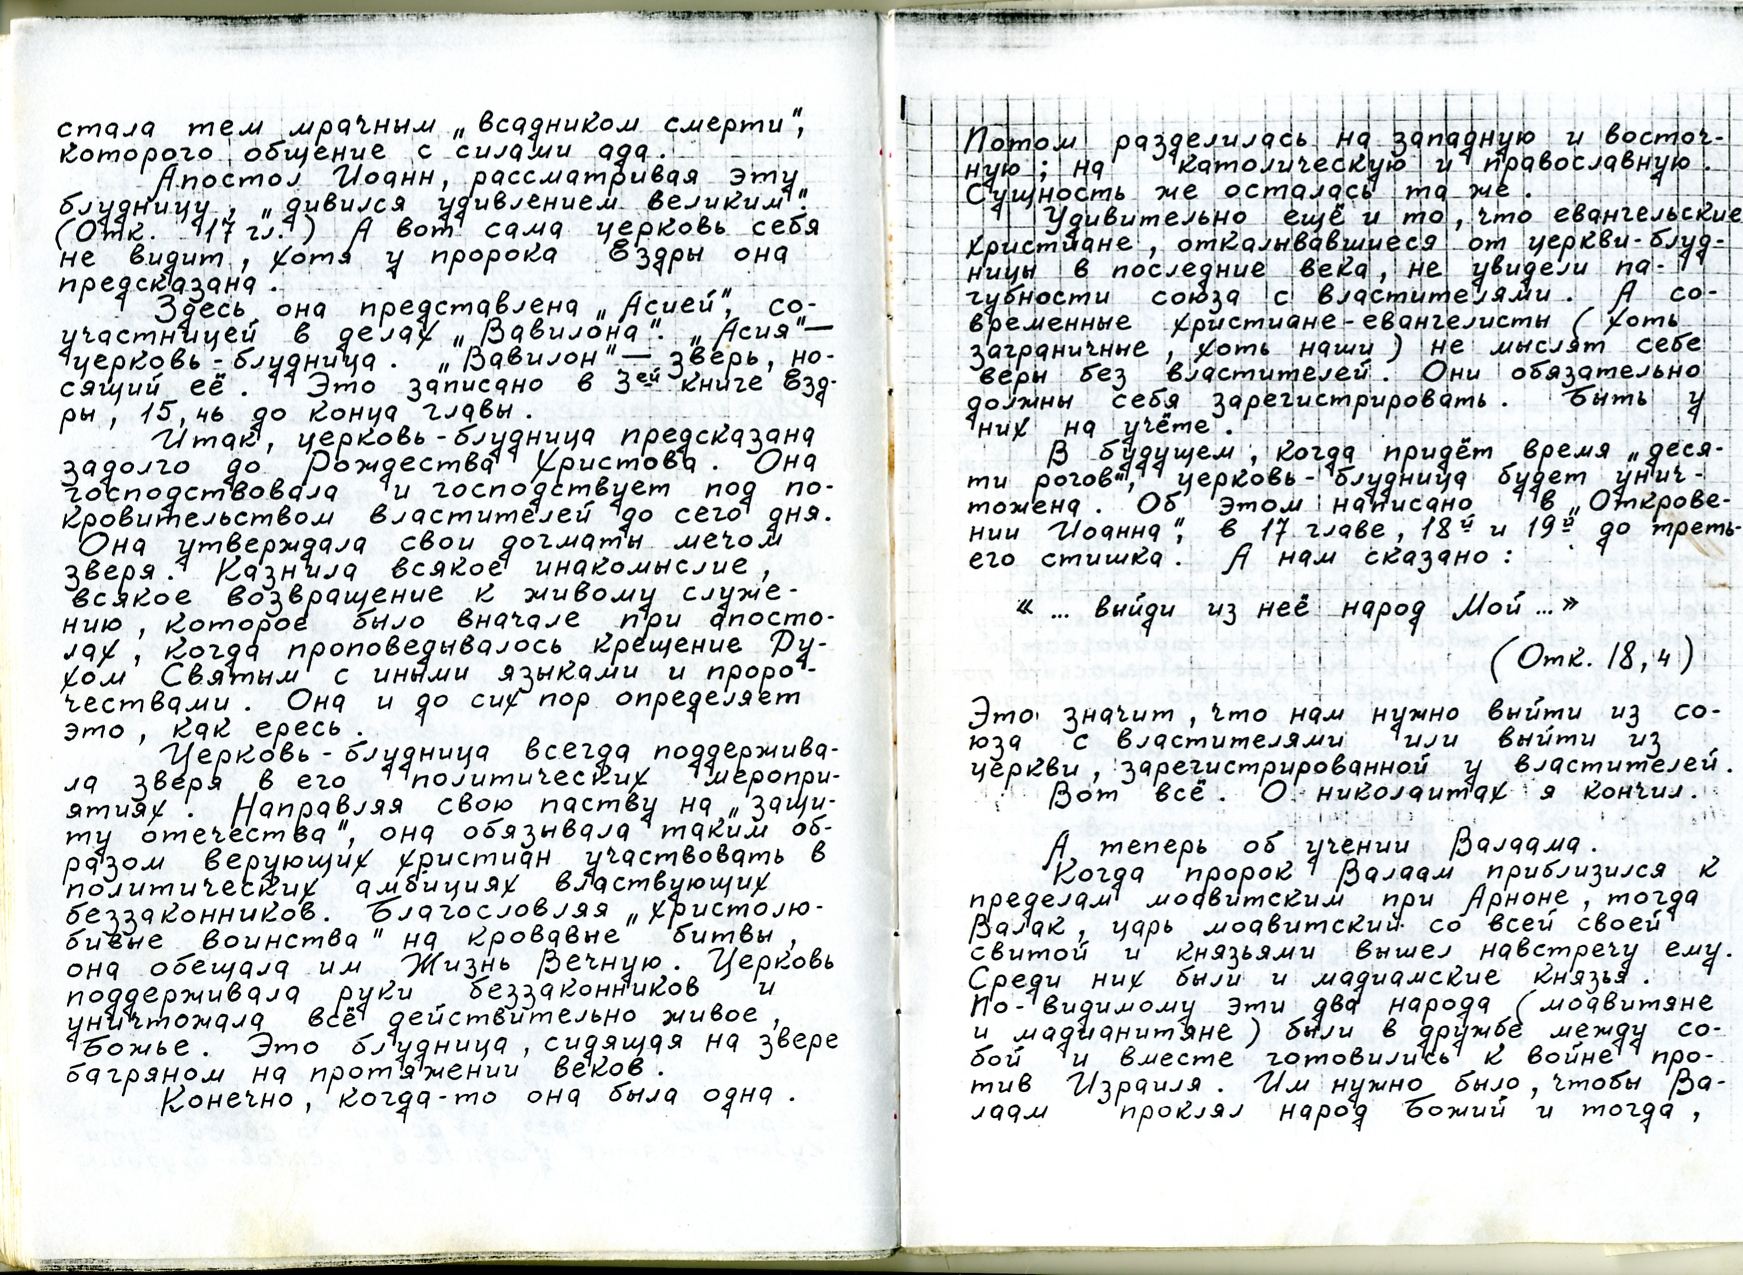 стала тем мрачным „всадником смерти",
которого общение с силами ада.
Апостол Иоанн, рассматривая эту
блудницу, „дивился удивлением великим".
(Отк. 17 гл.) А вот сама церковь себя
не видит, хотя у пророка Ездры она
предсказана.
Здесь она представлена „Асией", со-
участницей в делах „Вавилона". „Асия"—
церковь-блудница. „Вавилон"— зверь, но-
сящий её. Это записано в 3ей книге Езд-
ры, 15,46 до конца главы.
Итак, церковь-блудница предсказана
задолго до Рождества Христова. Она
господствовала и господствует под по-
кровительством властителей до сего дня.
Она утверждала свои догматы мечом
зверя. Казнила всякое инакомыслие,
всякое возвращение к живому служе-
нию, которое было вначале при апосто-
лах, когда проповедывалось крещение Ду-
хом Святым с иными языками и проро-
чествами. Она и до сих пор определяет
это, как ересь.
Церковь-блудница всегда поддержива-
ла зверя в его политических меропри-
ятиях. Направляя свою паству на „защи-
ту отечества", она обязывала таким об-
разом верующих христиан участвовать в
политических амбициях властвующих
беззаконников. Благословляя „христолю-
бивые воинства" на кровавые битвы,
она обещала им Жизнь Вечную. Церковь
поддерживала руки беззаконников и
уничтожала всё действительно живое,
Божье. Это блудница, сидящая на звере
багряном на протяжении веков.
Конечно, когда-то она была одна.
Потом разделилась на западную и восточ-
ную; на католическую и православную.
Сущность же осталась та же.
Удивительно ещё и то, что евангельские
христиане, откалывавшиеся от церкви-блуд-
ницы в последние века, не увидели па-
губности союза с властителями. А со-
временные христиане-евангелисты (хоть
заграничные, хоть наши) не мыслят себе
веры без властителей. Они обязательно
должны себя зарегистрировать. Быть у
них на учёте.
В будущем, когда придёт время „деся-
ти рогов", церковь-блудница будет унич-
тожена. Об этом написано в „Открове-
нии Иоанна", в 17 главе, 18й и 19й до треть-
его стишка. А нам сказано:
«... выйди из неё народ Мой...»
(Отк. 18,4)
Это значит, что нам нужно выйти из со-
юза с властителями или выйти из
церкви, зарегистрированной у властителей.
Вот всё. О николаитах я кончил.
А теперь об учении Валаама.
Когда пророк Валаам приблизился к
пределам моавитским при Арноне, тогда
Валак, царь моавитский со всей своей
свитой и князьями вышел навстречу ему.
Среди них были и мадиамские князья.
По-видимому эти два народа (моавитяне
и мадианитяне) были в дружбе между со-
бой и вместе готовились к войне про-
тив Израиля. Им нужно было, чтобы Ва-
лаам проклял народ Божий и тогда,